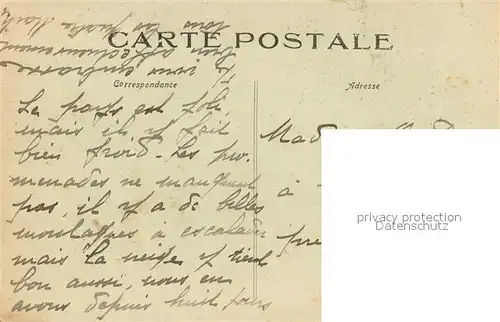 CARTE POSTALE
Correspondance
Adresse
Le pays est joli,
mais il y fait
bien froid. Les pro
menades ne manquent
pas, il y a de belles
montagnes à escalader
mais la neige y tient
bon aussi, nous en
avons depuis huit jours
Je vous embrasse
bien affectueusement
tous
Mad
à
pre
privacy protection
Datenschutz